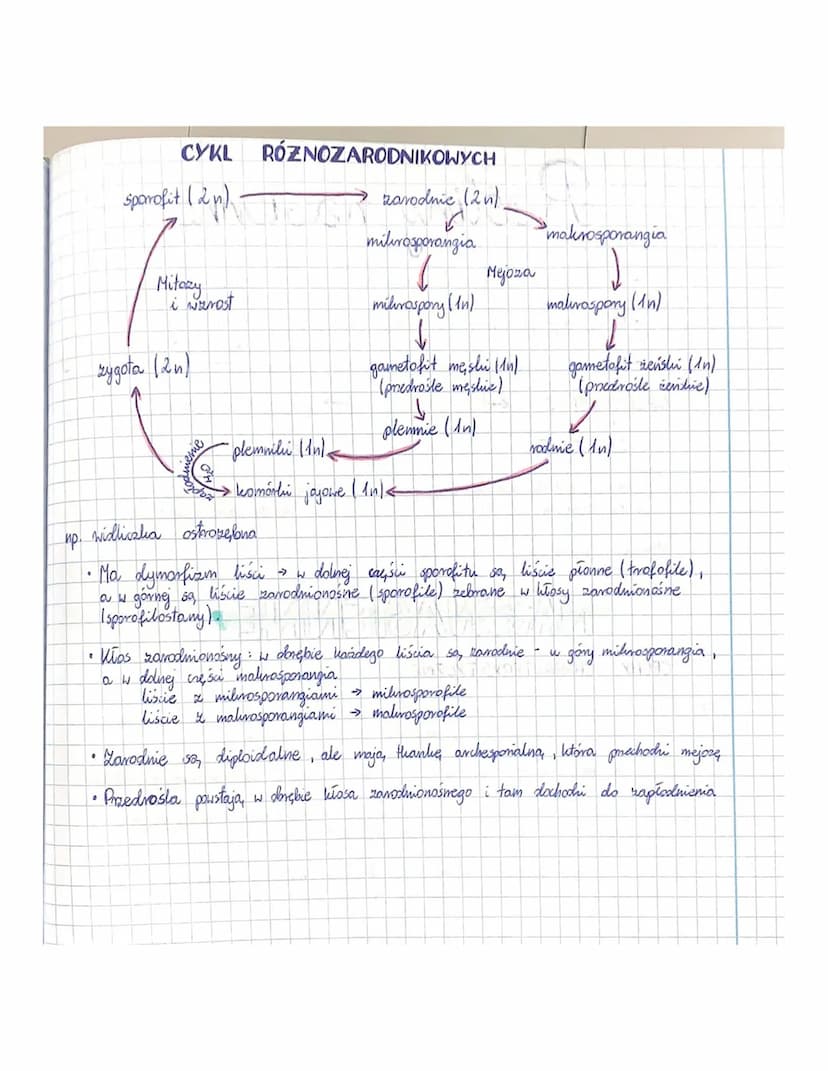 CYKL RÓŻNOZARODNIKOWYCH
sporofit (2n) zarodnie (2n)
mikrosporangia makrosporangia
Mejoza
Mitozy
i wzrost
mikrospory (1n) makrospory (1n)
zygota (2n)
gametofit męski (1n) gametofit żeński (1n)
(przedrośle męskie) (przedrośle żeńskie)
plemnie (1n)
plemniki (1n) rodnie (1n)
zapłodnienie
H₂O
komórki jajowe (1n)
np. widliczka ostrozębna
• Ma dymorfizm liści → w dolnej części sporofitu są liście płonne (trofofile),
a w górnej są liście zarodnionośne (sporofile) zebrane w kłosy zarodnionośne
(sporofilostany).
• Kłos zarodnionośny: w obrębie każdego liścia są zarodnie - w góry mikrosporangia,
a w dolnej części makrosporangia
liście z mikrosporangiami → mikrosporofile
liście z makrosporangiami → makrosporofile
• Zarodnie są diploidalne, ale mają tkankę archesporialną, która przechodzi mejozę
• Przedrośla powstają w obrębie kłosa zarodnionośnego i tam dochodzi do zapłodnienia